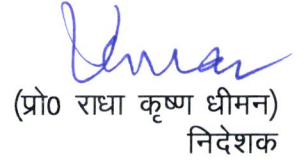 (प्रो0 राधा कृष्ण धीमन)
निदेशक